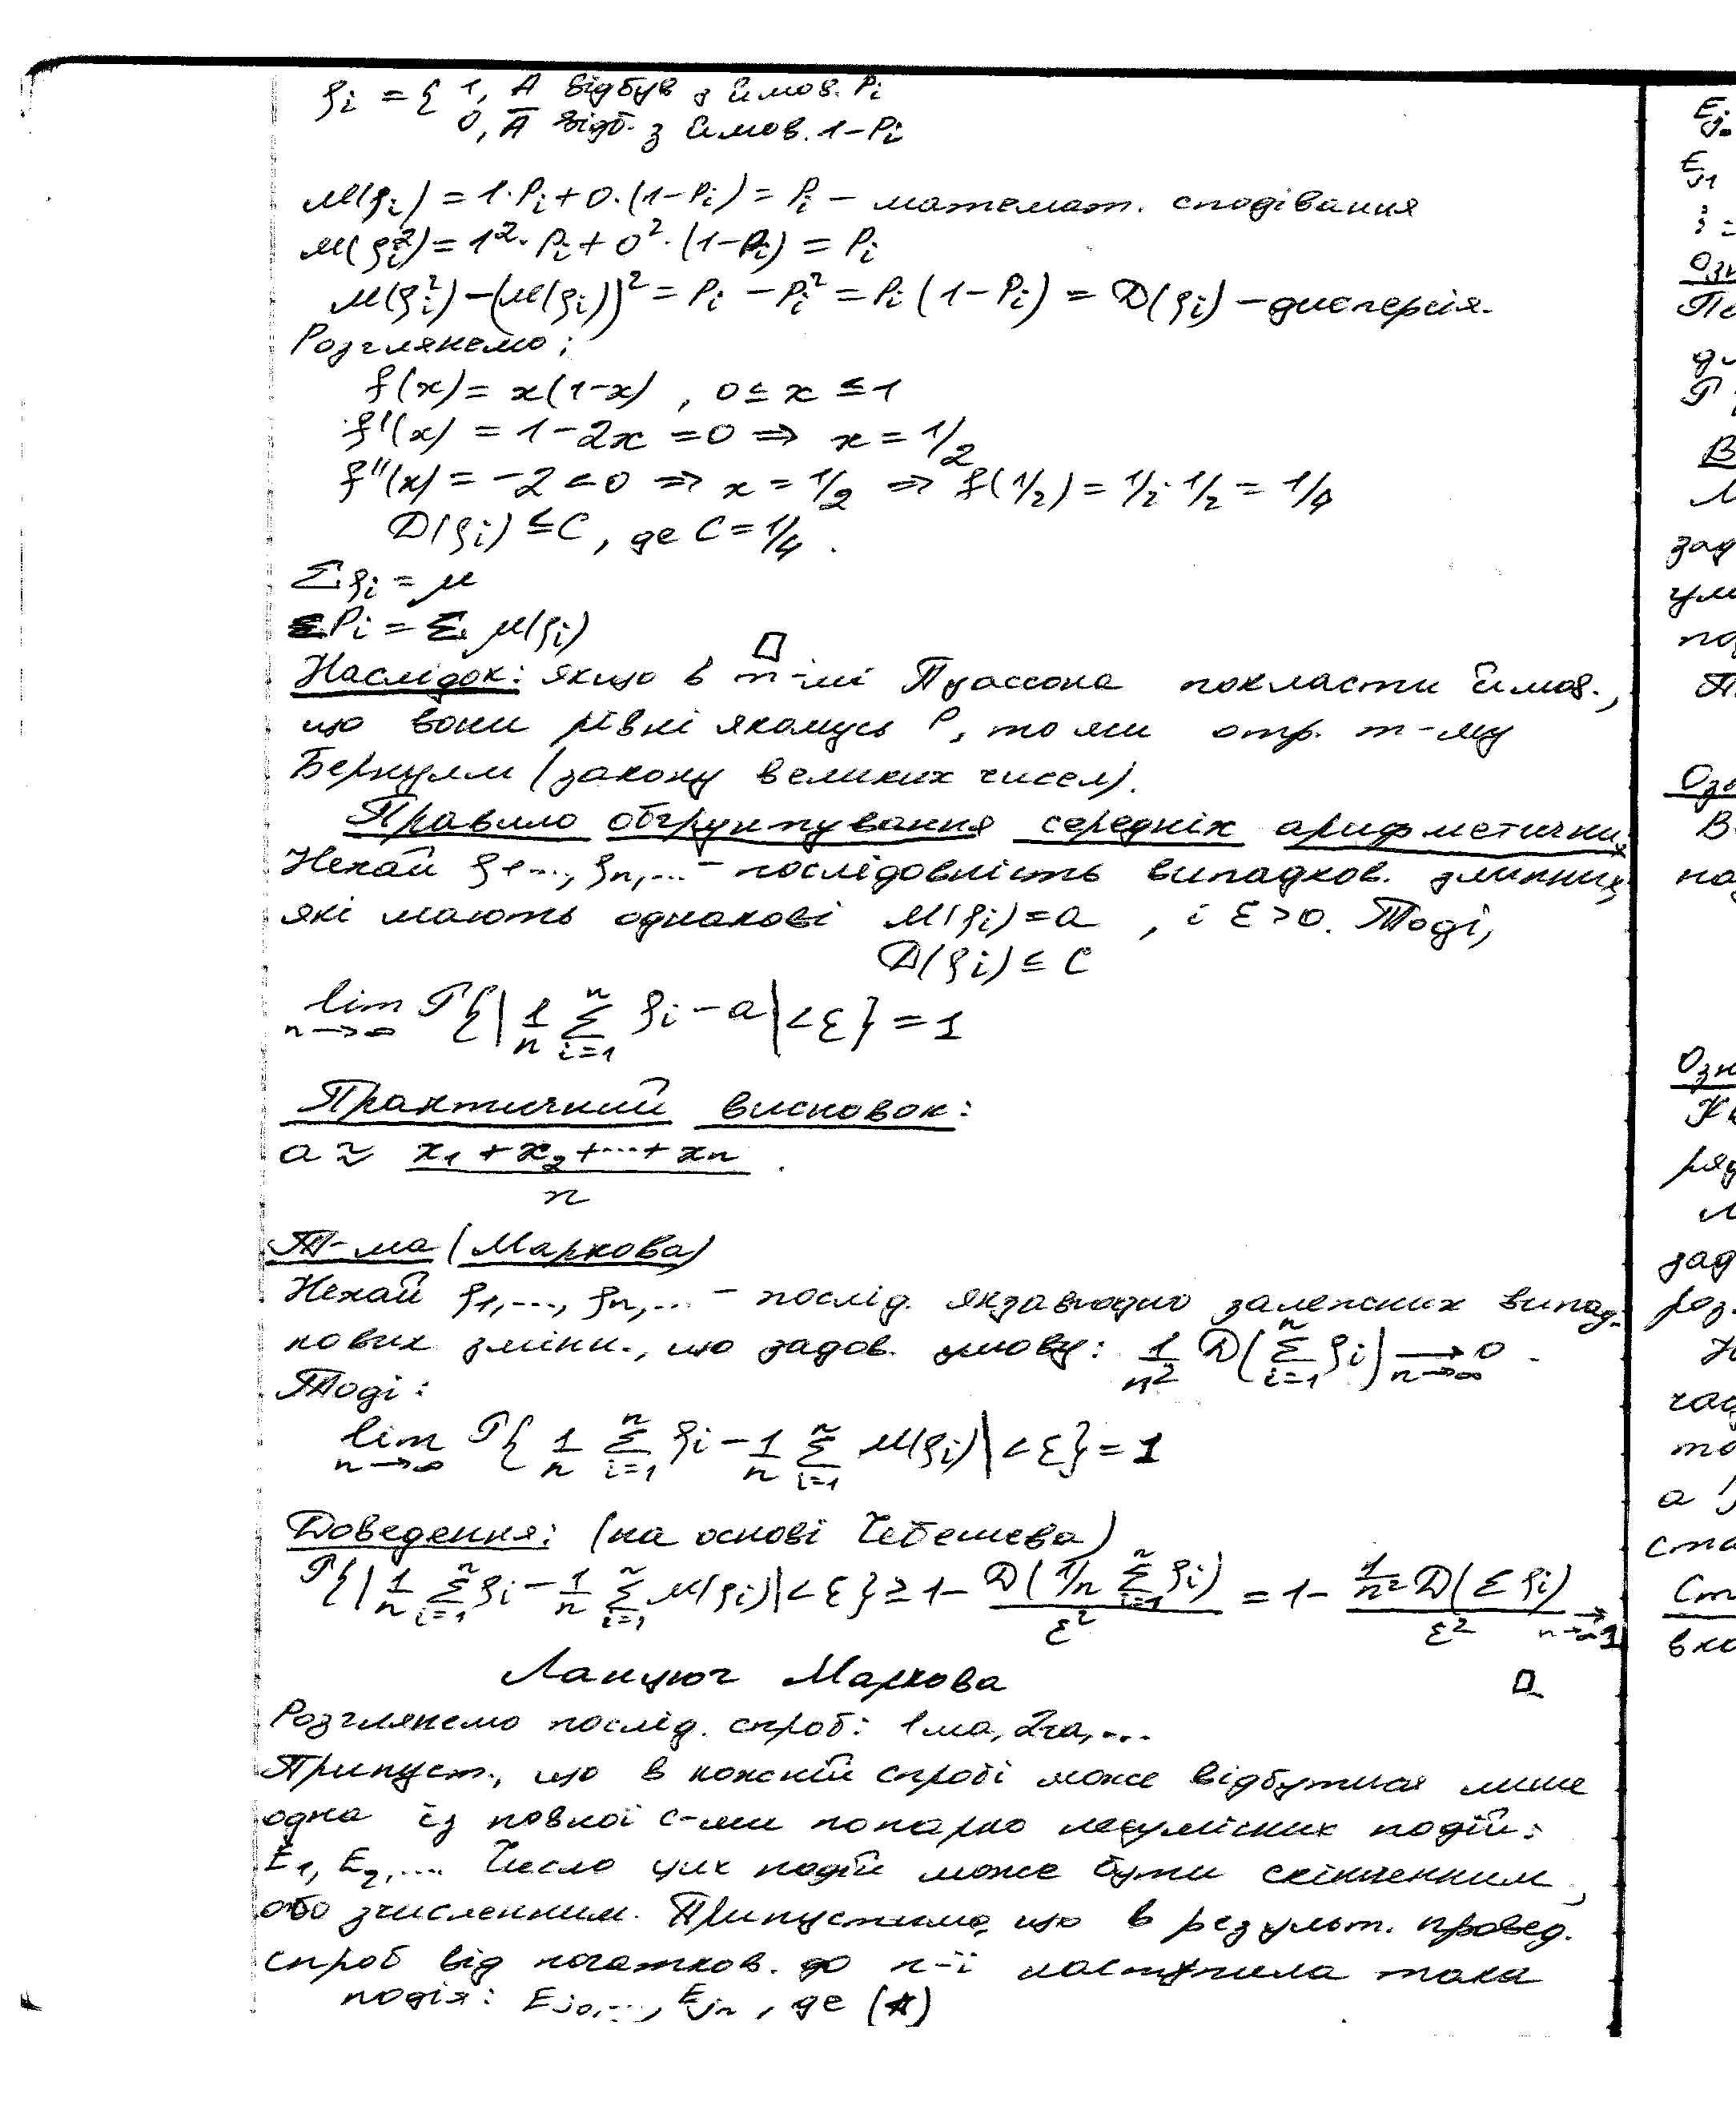 ξi = { 1, A відбув з ймов. Pi
0, Ā відб. з ймов. 1-Pi
M(ξi) = 1·Pi + 0·(1-Pi) = Pi - математ. сподівання
M(ξi²) = 1²·Pi + 0²·(1-Pi) = Pi
M(ξi²) - (M(ξi))² = Pi - Pi² = Pi(1-Pi) = D(ξi) - дисперсія.
Розглянемо:
f(x) = x(1-x), 0 ≤ x ≤ 1
f'(x) = 1-2x = 0 ⇒ x = 1/2
f''(x) = -2 < 0 ⇒ x = 1/2 ⇒ f(1/2) = 1/2·1/2 = 1/4
D(ξi) ≤ C, де C = 1/4.
Σξi = μ
ΣPi = Σ M(ξi)
Наслідок: якщо в т-мі Пуассона покласти ймов.,
що вони рівні якомусь P, то ми отр. т-му
Бернуллі (закону великих чисел).
Правило обгрунтування середніх арифметичних
Нехай ξ1..., ξn,... - послідовність випадков. змінних,
які мають однакові M(ξi) = a, і ε > 0. Тоді,
D(ξi) ≤ C
lim n→∞ P{|1/n Σ i=1 n ξi - a| < ε} = 1
Практичний висновок:
a ≈ x1 + x2 + ... + xn / n.
Т-ма (Маркова)
Нехай ξ1, ..., ξn, ... - послід. якзавгодно залежних випад-
кових змінн., що задов. умову: 1/n² D(Σ i=1 n ξi) → 0 n→∞.
Тоді:
lim n→∞ P{1/n Σ i=1 n ξi - 1/n Σ i=1 n M(ξi)| < ε} = 1
Доведення: (на основі Чебешева)
P{|1/n Σ i=1 n ξi - 1/n Σ i=1 n M(ξi)| < ε} ≥ 1 - D(1/n Σ i=1 n ξi)/ε² = 1 - 1/n² D(Σξi)/ε² → n→∞ 1
Ланцюг Маркова
Розглянемо послід. спроб: 1ша, 2га, ...
Припуст., що в кожній спробі може відбутися лише
одна із повної с-ми попарно несумісних подій:
E1, E2, ... Число цих подій може бути скінченним,
або зчисленним. Припустимо, що в результ. провед.
спроб від початков. до n-ї наступила така
подія: Ej0, ..., Ejn, де (*)